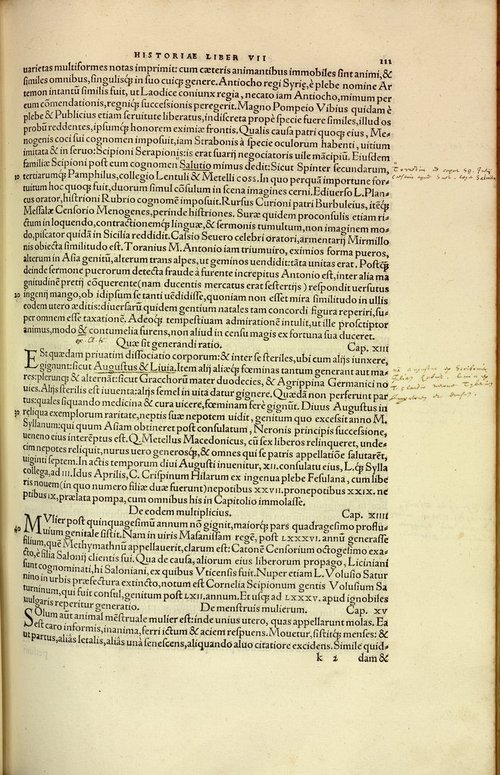 HISTORIAE LIBER VII 111
uarietas multiformes notas imprimit: cum cæteris animantibus immobiles sint animi, &
similes omnibus, singulisq́ in suo cuiq́. Antiocho regi Syrię, è plebe nomine Ar
temon intantũ similis fuit, ut Laodice coniunx regia, necato iam Antiocho, mimum per
eum cõmendationis, regniq́ successionis peregerit. Magno Pompeio Vibius quidam è
plebe & Publicius etiam seruitute liberatus, indiscreta prope specie fuere similes, illud os
probũ reddentes, ipsumq́ honorem eximiæ frontis. Qualis causa patri quoq́ eius, Me,
nogenis coci sui cognomen imposuit, iam Strabonis à specie oculorum habenti, uitium
imitata & in seruo: Scipioni Serapionis: is erat suarij negociatoris uile mãcipiũ. Eiusdem
similiæ Scipioni post eum cognomen Salutio mimus dedit: Sicut Spinter secundarum,
10 tertiarumq́ Pamphilus, collegio Lentuli & Metelli coss. In quo perquã importune for,
tuitum hoc quoq́ fuit, duorum simul cõsulum in scena imagines cerni. Ediuerso L. Plan,
cus orator, histrioni Rubrio cognomẽ imposuit. Rursus Curioni patri Burbuleius, itẽq́
Messalæ Censorio Menogenes, perinde histriones. Suræ quidem proconsulis etiam ri,
ctum in loquendo, contractionemq́ linguæ, & sermonis tumultum, non imaginem mo,
do, piscator quidã in Sicilia reddidit. Cassio Seuero celebri oratori, armentarij Mirmillo
nis obiecta similitudo est. Toranius M. Antonio iam triumuiro, eximios forma pueros,
alterum in Asia genitũ, alterum trans alpes, ut geminos uendidit: tãta unitas erat. Postq̃
deinde sermone puerorum detecta fraude à furente increpitus Antonio est, inter alia ma
gnitudinẽ pretij cõquerente (nam ducentis mercatus erat sestertijs) respondit uersutus
20 ingenij mango, ob idipsum se tanti uẽdidisse, quoniam non esset mira similitudo in ullis
eodem utero æditis: diuersarũ quidem gentium natales tam concordi figura reperiri, su,
per omnem esse taxationẽ. Adeoq́ tempestiuum admirationẽ intulit, ut ille proscriptor
animus, modò & contumelia furens, non aliud in censu magis ex fortuna sua duceret.
Quæ sit generandi ratio. Cap. XIII
ESt quædam priuatim dissociatio corporum: & inter se steriles, ubi cum alijs iunxere,
gignunt: sicut Augustus & Liuia. Item alij aliæq́ fœminas tantum generant aut ma,
res: plerunq́ & alternãt: sicut Gracchorũ mater duodecies, & Agrippina Germanici no
uies. Alijs sterilis est iuuenta: alijs semel in uita datur gignere. Quædã non perferunt par
tus: quales siquando medicina & cura uicere, fœminam ferè gignũt. Diuus Augustus in
30 reliqua exemplorum raritate, neptis suæ nepotem uidit, genitum quo excessit anno M.
Syllanum: qui quum Asiam obtineret post consulatum, Neronis principis successione,
ueneno eius interẽptus est. Q. Metellus Macedonicus, cũ sex liberos relinqueret, unde,
cim nepotes reliquit, nurus uero generosq́, & omnes qui se patris appellatiõe salutarẽt,
uiginti septem. In actis temporum diui Augusti inuenitur, XII. consulatu eius, L.q́ Sylla
collega, ad III. Idus Aprilis, C. Crispinum Hilarum ex ingenua plebe Fesulana, cum libe
ris nouem (in quo numero filiæ duæ fuerunt) nepotibus XXVII. pronepotibus XXIX. ne
ptibus IX. prælata pompa, cum omnibus his in Capitolio immolasse.
De eodem multiplicius. Cap. XIIII
MVlier post quinquagesimũ annum nõ gignit, maiorq́ pars quadragesimo proflu,
40 uium genitale sistit. Nam in uiris Masanissam regẽ, post LXXXVI. annũ generasse
filium, quẽ Methymathnũ appellauerit, clarum est: Catonẽ Censorium octogesimo exa,
cto, è filia Salonij clientis sui. Qua de causa, aliorum eius liberorum propago, Liciniani
sunt cognominati, hi Saloniani, ex quibus Vticensis fuit. Nuper etiam L. Volusio Satur
nino in urbis præfectura extincto, notum est Cornelia Scipionum gentis Volusium Sa
turninum, qui fuit consul, genitum post LXII. annum. Et usq́ ad LXXXV. apud ignobiles
uulgaris reperitur generatio. De menstruis mulierum. Cap. XV
SOlum aut animal mẽstruale mulier est: inde unius utero, quas appellarunt molas. Ea
est caro informis, inanima, ferri ictum & aciem respuens. Mouetur, sistitq́ menses: &
ut partus, aliàs letalis, aliàs unà senescens, aliquando aluo citatiore excidens. Simile quid,
k 2 dam &